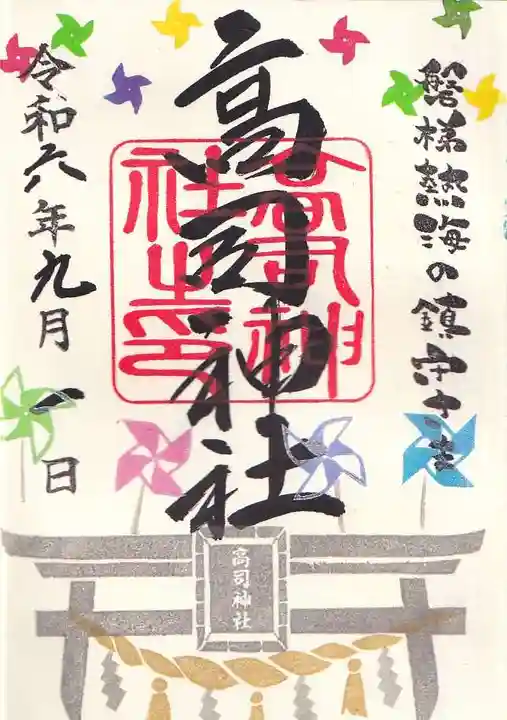 磐梯熱海の鎮守さま
高司神社
高司神社之印
令和六年九月一日
高司神社